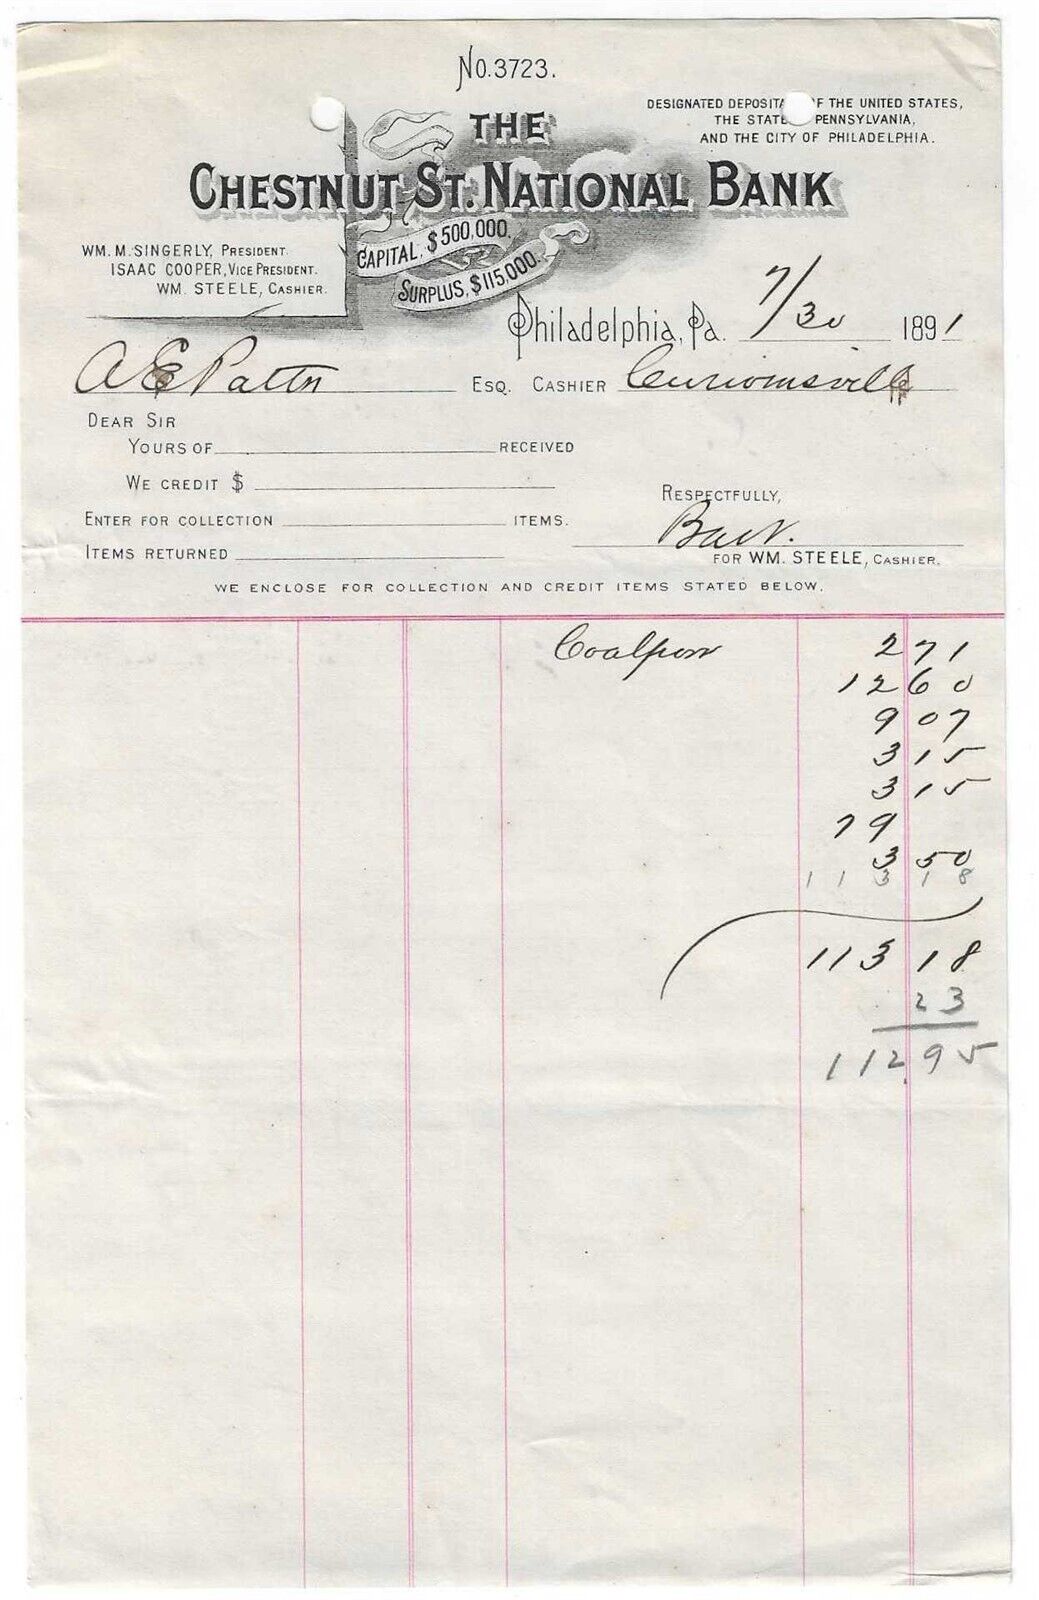 No. 3723.
DESIGNATED DEPOSITA F THE UNITED STATES,
THE STATE PENNSYLVANIA,
AND THE CITY OF PHILADELPHIA.
THE
CHESTNUT ST. NATIONAL BANK
CAPITAL, $500,000.
SURPLUS, $115,000.
WM. M. SINGERLY, PRESIDENT.
ISAAC COOPER, VICE PRESIDENT.
WM. STEELE, CASHIER.
Philadelphia, Pa. 7/30 1891
A E Patton ESQ. CASHIER Curwinsville
DEAR SIR
YOURS OF RECEIVED
WE CREDIT $
ENTER FOR COLLECTION ITEMS.
ITEMS RETURNED
RESPECTFULLY,
FOR WM. STEELE, CASHIER.
WE ENCLOSE FOR COLLECTION AND CREDIT ITEMS STATED BELOW.
Coalport 2 71
12 60
9 07
3 15
3 15
79
3 50
113 18
113 18
23
112.95